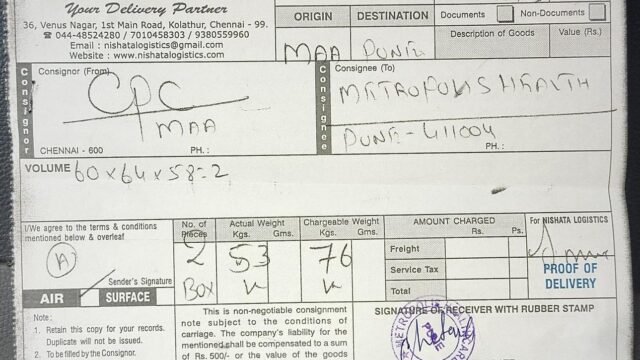 Your Delivery Partner
36, Venus Nagar, 1st Main Road, Kolathur, Chennai - 99.
☎ 044-48524280 / 7010458303 / 9380559960
Email : nishatalogistics@gmail.com
Website : www.nishatalogistics.com
ORIGIN DESTINATION
MAA PUNE
Documents Non-Documents
Description of Goods Value (Rs.)
Consignor
Consignor (From)
CPC
MAA
CHENNAI - 600 PH. :
Consignee
Consignee (To)
METROPOLIS HEALTH
PUNE - 411004
PH. :
VOLUME 60 x 64 x 58 = 2
I/We agree to the terms & conditions
mentioned below & overleaf
Sender's Signature
AIR SURFACE
No. of Pieces
2
BOX
Actual Weight
Kgs. Gms.
53
Chargeable Weight
Kgs. Gms.
76
AMOUNT CHARGED
Rs. Ps.
Freight
Service Tax
Total
For NISHATA LOGISTICS
PROOF OF
DELIVERY
Note :
1. Retain this copy for your records.
Duplicate will not be issued.
2. To be filled by the Consignor.
This is non-negotiable consignment
note subject to the conditions of
carriage. The company's liability for the
mentioned shall be compensated to a sum
of Rs. 500/- or the value of the goods
SIGNATURE OF RECEIVER WITH RUBBER STAMP